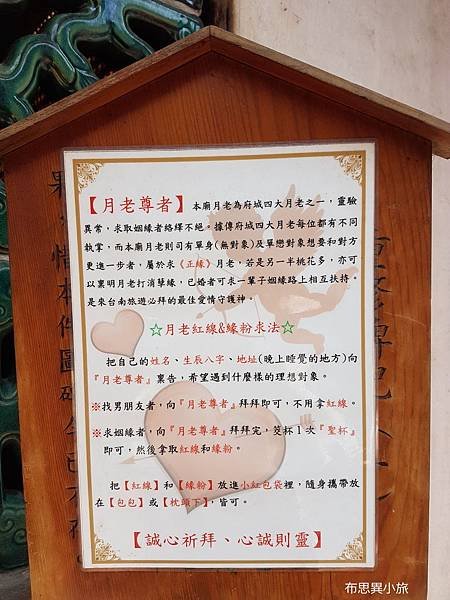 【月老尊者】本廟月老為府城四大月老之一，靈驗
異常，求取姻緣者絡繹不絕。據傳府城四大月老每位都有不同
執掌，而本廟月老則司有單身(無對象)及單戀對象想要和對方
更進一步者，屬於求《正緣》月老，若是另一半桃花多，亦可
以稟明月老打消孽緣，已婚者可求一輩子姻緣路上相互扶持。
是來台南旅遊必拜的最佳愛情守護神。
☆月老紅線&緣粉求法☆
把自己的姓名、生辰八字、地址(晚上睡覺的地方)向
『月老尊者』稟告，希望遇到什麼樣的理想對象。
※找男朋友者，向『月老尊者』拜拜即可，不用拿紅線。
※求姻緣者，向『月老尊者』拜拜完，筊杯1次『聖杯』
即可，然後拿取紅線和緣粉。
把【紅線】和【緣粉】放進小紅包袋裡，隨身攜帶放
在【包包】或【枕頭下】，皆可。
【誠心祈拜、心誠則靈】
布思異小旅